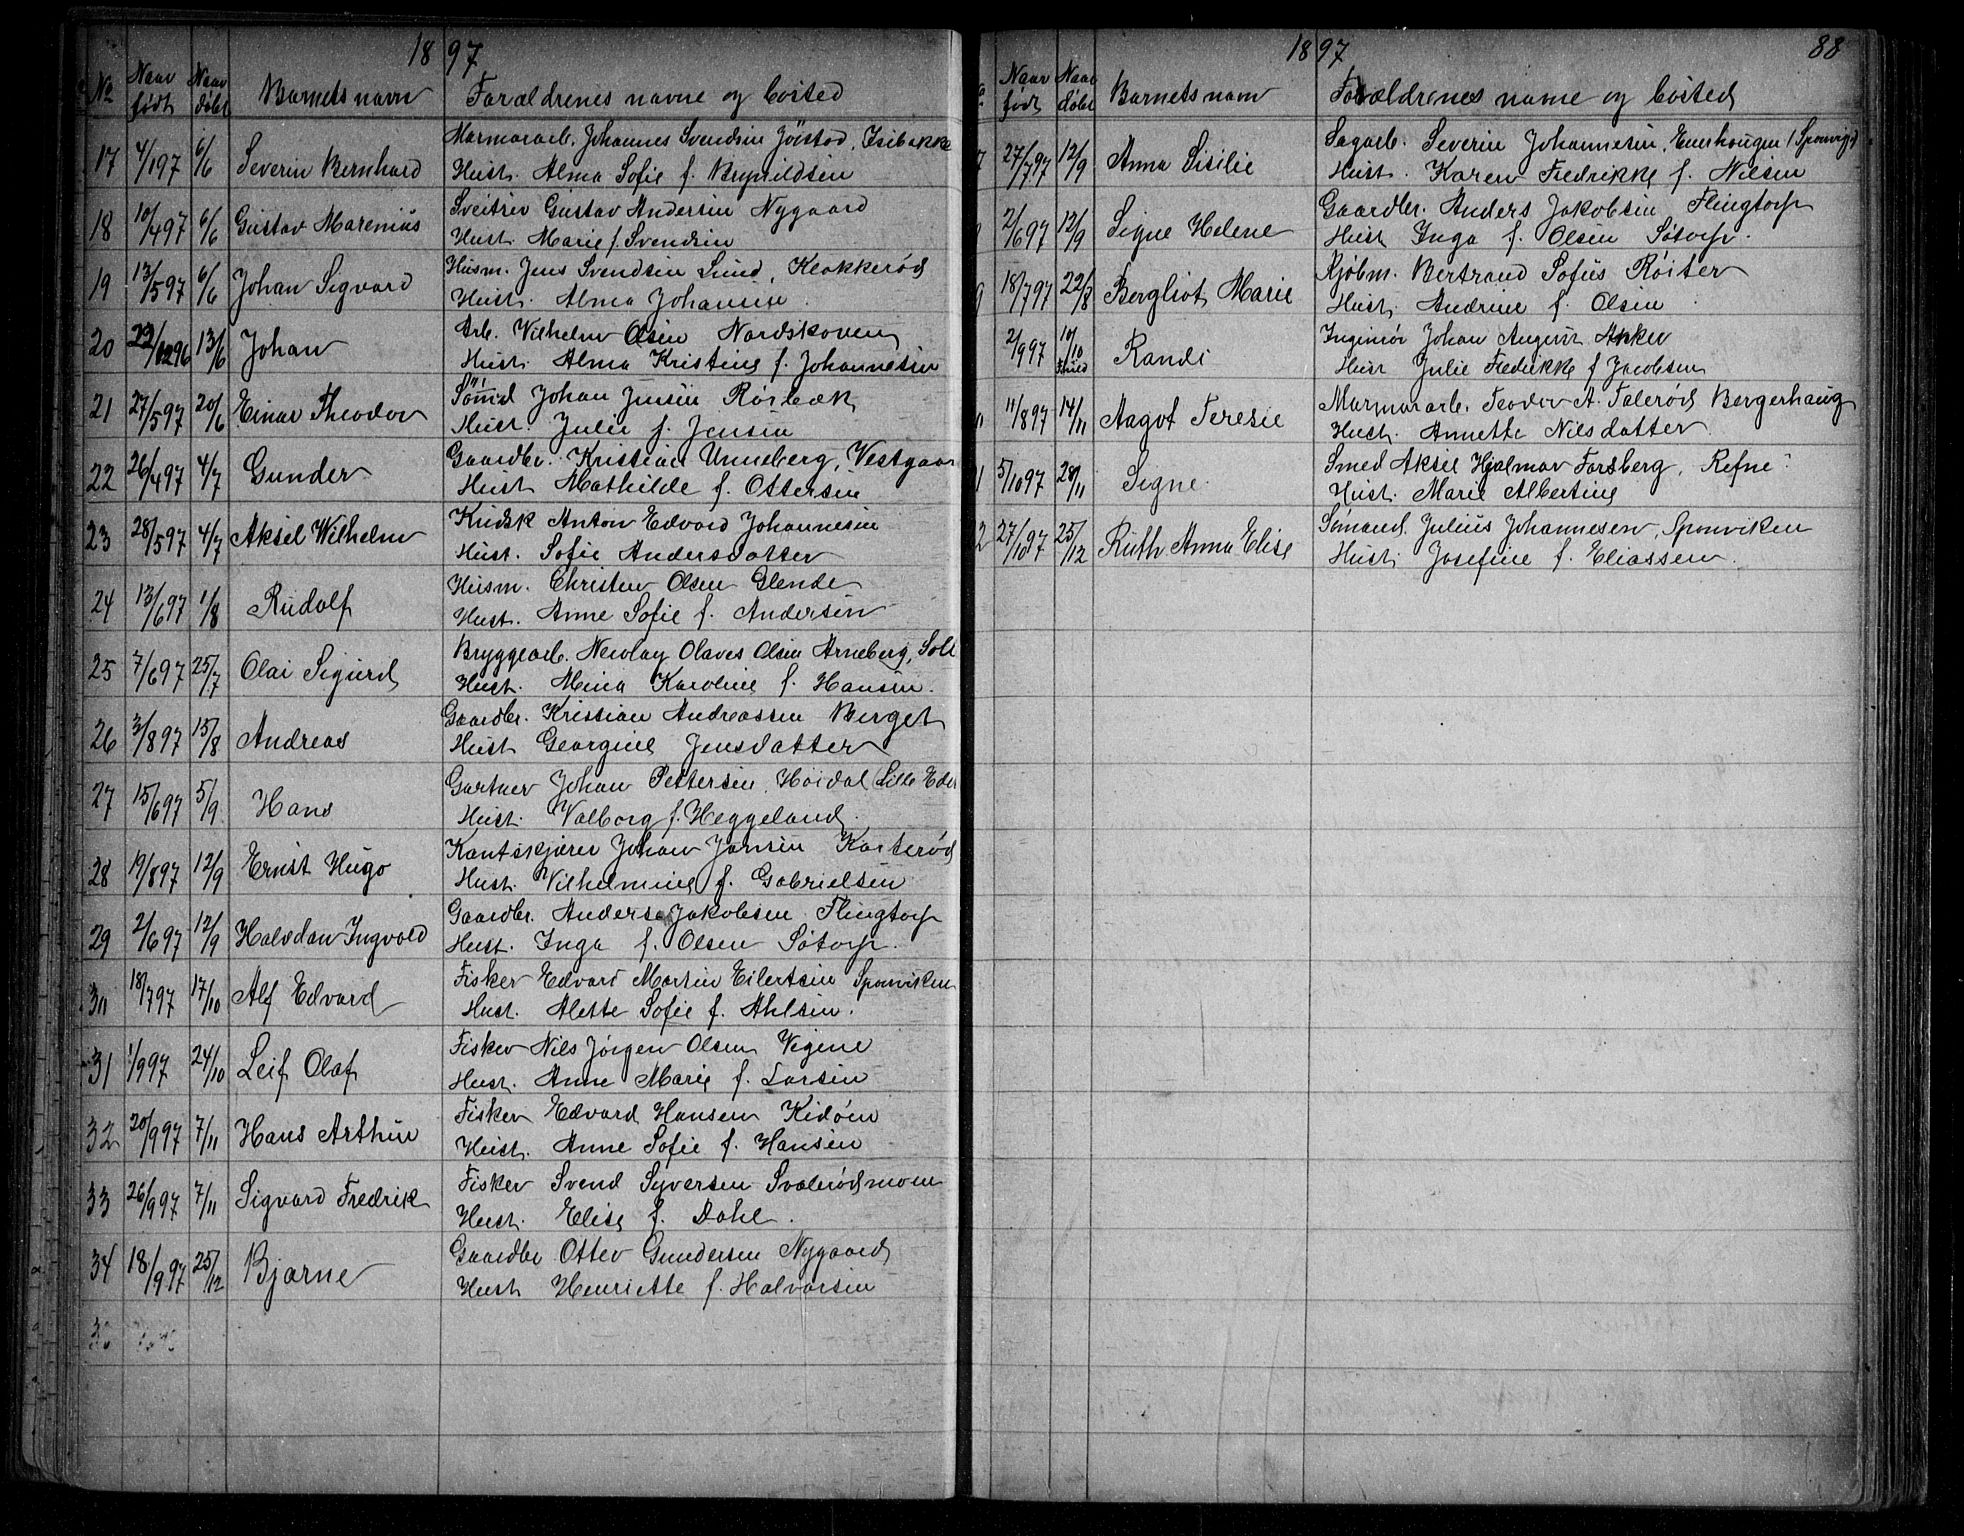 18 97
No Naar født Naar døbt Barnets navn Forældrenes navne og bosted
17 4/197 6/6 Severin Bernhard Marmorarb. Johannes Svendsen Jöistad, Isebakke
Hust. Alma Sofie f. Brynildsen
18 10/497 6/6 Gustav Marenius Sveitser Gustav Andersen Nygaard
Hust. Marie f. Svendsen
19 13/597 6/6 Johan Sigvard Husm. Jens Svendsen Lund, Klokkerød
Hust. Alma Johannise
20 29/1296 13/6 Johan Arb. Wilhelm Olsen Nordskoven
Hust. Alma Kristine f. Johannesen
21 27/597 20/6 Einar Theodor Sömd Johan Jensen Rörbæk
Hust. Julie f. Jensen
22 26/497 4/7 Gunder Gaardbr. Kristian Unneberg, Vestgaar
Hust Mathilde f. Ottersen
23 28/597 4/7 Aksel Wilhelm Kudsk Anton Edvard Johannesen
Hust. Sofie Andersdatter
24 13/697 1/8 Rudolf Husm. Christen Olsen Glende
Hust. Anne Sofie f. Andersen
25 7/697 25/7 Olai Sigurd Bryggearb. Nicolay Olaves Olsen Arneberg, Solb
Hust. Mina Karoline f. Hansen.
26 3/897 15/8 Andreas Gaardbr. Kristian Andreassen Berget
Hust Georgine Jensdatter
27 15/697 5/9 Hans Gartner Johan Pettersen, Höidal (Lille Eder
Hust. Valborg f. Heggeland.
28 19/897 12/9 Ernst Hugo Kantskjærer Johan Jansen Karterød
Hust. Vilhelmine f. Gabrielsen
29 2/697 12/9 Halvdan Ingvald Gaardbr. Anders Jakobsen Flingtorp
Hust. Inga f. Olsen Søtorp.
30 18/797 17/10 Alf Edvard Fisker Edvard Martin Eilertsen Sponviken
Hust. Alette Sofie f. Ahlsen.
31 1/997 24/10 Leif Olaf Fisker Nils Jörgen Olsen Vigene
Hust. Anne Marie f. Larsen
32 20/997 7/11 Hans Arthur Fisker Edvard Hansen Kidöen
Hust. Anne Sofie f. Hansen
33 26/997 7/11 Sigvard Fredrik Fisker Svend Syversen Svalerødmoen
Hust. Elise f. Dahl.
34 18/997 25/12 Bjarne Gaardbr Otter Gundersen Nygaard
Hust Henriette f. Halvorsen
18 97 88
Naar født Naar døbt Barnets navn Forældrenes navne og bosted
7 27/797 12/9 Anna Sisilie Sagarb. Severin Johannesen, Enerhougen (Sponvig)
Hust. Karen Fredrikke f. Nilsen
2/697 12/9 Signe Helene Gaardbr. Anders Jakobsen Flingtorp
Hust Inga f. Olsen Søtorp.
9 18/797 22/8 Bergliot Marie Kjøbm. Bertrand Sofus Röiter
Hust. Andrine f. Olsen
2/997 10/10 Randi Ingeniør Johan August Anker
Hust Julie Fredrikke f Jacobsen
11/897 14/11 Aagot Teresie Marmorarb. Teodor A. Falerød Bergerhaug
Hust. Annette Nilsdatter
1 5/1097 28/11 Signe Smed Aksel Hjalmar Forsberg, Refne
Hust. Marie Albertine
2 27/1097 25/12 Ruth Anna Elise Sömand. Julius Johannesen, Sponviken
Hust. Josefine f. Eliassen.